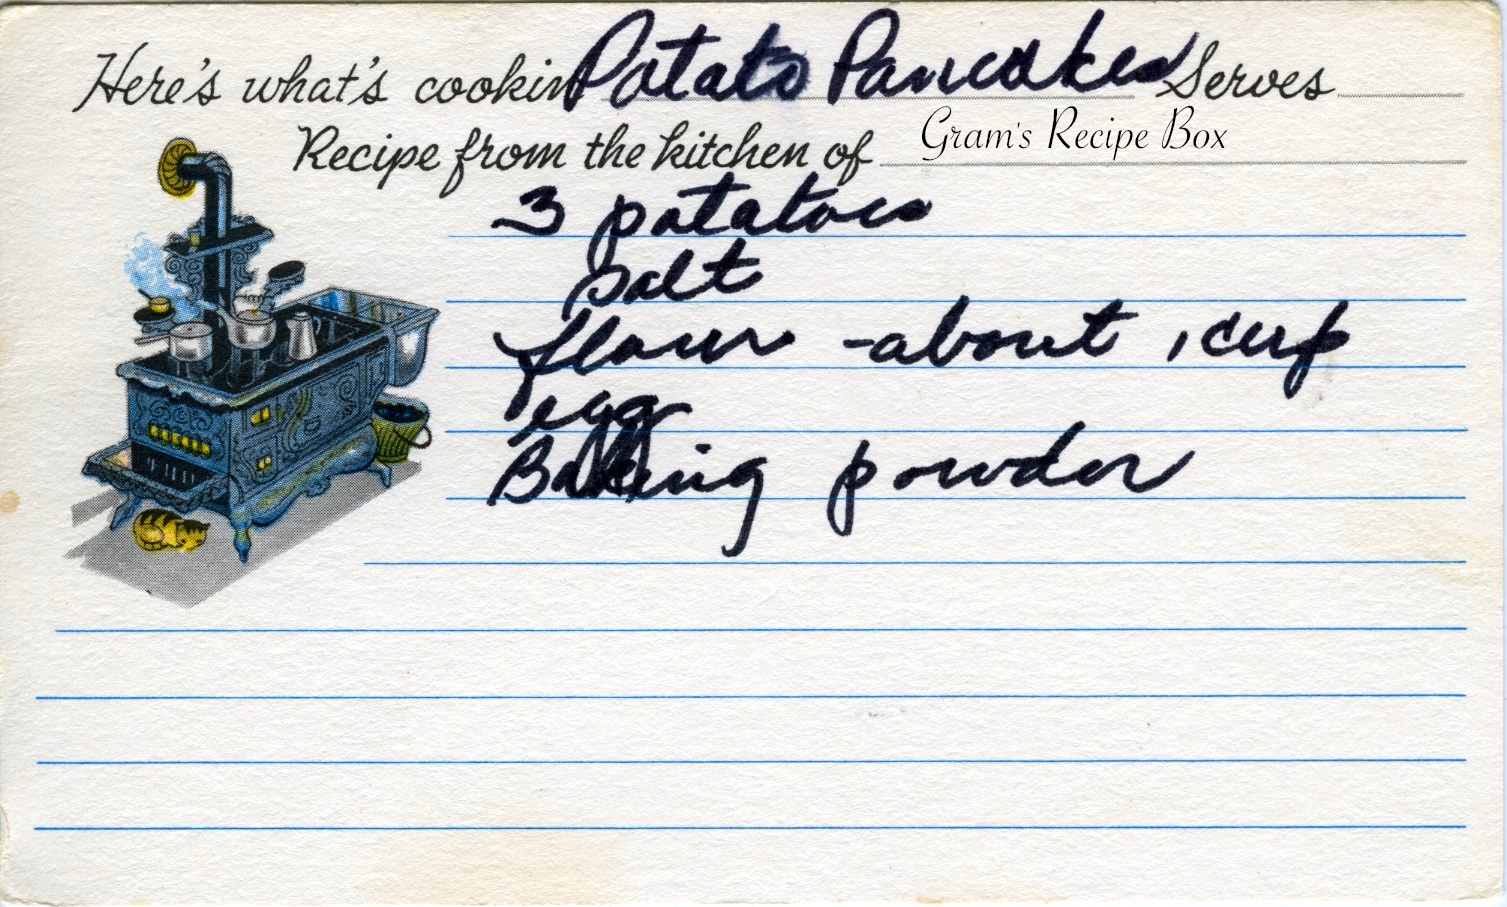 Here's what's cookin Potato Pancakes Serves
Recipe from the kitchen of Gram's Recipe Box
3 potatoes
salt
flour - about 1 cup
egg
Baking powder